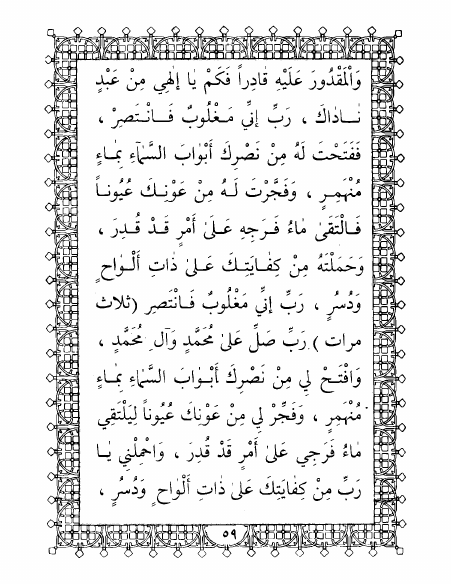 وَالْمَقْدُورَ عَلَيْهِ قادِراً فَكَمْ يٰا إِلٰهِي مِنْ عَبْدٍ
نٰاداكَ ، رَبِّ إِنّي مَغْلُوبٌ فَانْتَصِرْ ،
فَفَتَحْتَ لَهُ مِنْ نَصْرِكَ أَبْوابَ السَّماءِ بِماءٍ
مُنْهَمِرٍ ، وَفَجَّرْتَ لَهُ مِنْ عَوْنِكَ عُيُوناً
فَالْتَقىٰ مٰاءُ فَرَجِهِ عَلىٰ أَمْرٍ قَدْ قُدِرَ ،
وَحَمَلْتَهُ مِنْ كِفٰايَتِكَ عَلىٰ ذٰاتِ أَلْواحٍ
وَدُسُرٍ ، رَبِّ إِنّي مَغْلُوبٌ فَانْتَصِر (ثلاث
مرات ) رَبِّ صَلِّ عَلىٰ مُحَمَّدٍ وَآلِ مُحَمَّدٍ ،
وَافْتَحْ لِي مِنْ نَصْرِكَ أَبْوابَ السَّماءِ بِماءٍ
مُنْهَمِرٍ ، وَفَجِّرْ لِي مِنْ عَوْنِكَ عُيُوناً لِيَلْتَقِي
مٰاءُ فَرَجِي عَلىٰ أَمْرٍ قَدْ قُدِرَ ، وَاحْمِلْنِي يٰا
رَبِّ مِنْ كِفٰايَتِكَ عَلىٰ ذٰاتِ أَلْواحٍ وَدُسُرٍ ،
٥٩